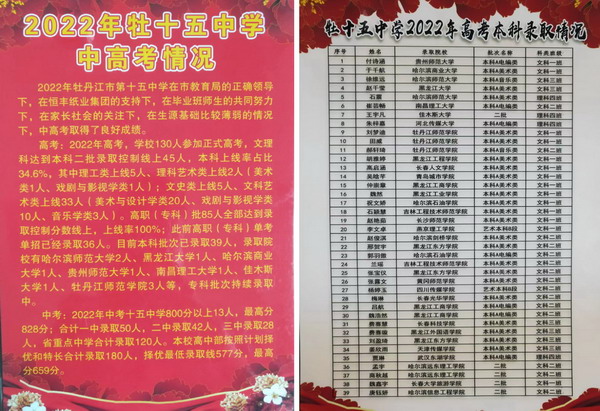 2022年牡十五中学
中高考情况
2022年牡丹江市第十五中学在市教育局的正确领导
下，在恒丰纸业集团的支持下，在毕业班师生的共同努力
下，在家长社会的关注下，在生源基础比较薄弱的情况
下，中高考取得了良好成绩。
高考：2022年高考，学校130人参加正式高考，文理
科达到本科二批录取控制线上45人，本科上线率占比
34.6%，其中理工类上线5人、理科艺术类上线2人（美术
类1人、戏剧与影视学类1人）；文史类上线5人、文科艺
术类上线33人（美术与设计学类20人、戏剧与影视学类
10人、音乐学类3人）。高职（专科）批85人全部达到录
取控制分数线，上线率100%；此前高职（专科）单考
单招已经录取36人。目前本科批次已录取39人，录取院
校有哈尔滨师范大学2人、黑龙江大学1人、哈尔滨商业
大学1人、贵州师范大学1人、南昌理工大学1人、佳木斯
大学1人、牡丹江师范学院3人等，专科批次持续录取
中。
中考：2022年中考十五中学800分以上13人，最高分
828分；合计一中录取50人，二中录取42人，三中录取28
人，省重点中学合计录取120人。本校高中部按照计划择
优和特长合计录取180人，择优最低录取线577分，最高
分659分。
牡十五中学2022年高考本科录取情况
序号 姓名 录取院校 批次名称 科类班级
1 付诗涵 贵州师范大学 本科A电编类 文科一班
2 于千航 哈尔滨商业大学 本科A美术类 文科一班
3 徐维远 哈尔滨师范大学 本科A音乐类 文科三班
4 赵千莹 黑龙江大学 本科A美术类 文科三班
5 石 哈尔滨师范大学 本科A美术类 理科四班
6 崔芸畅 南昌理工大学 本科A电编类 文科二班
7 王宇凡 佳木斯大学 二批 理科四班
8 朱梓嘉 河北传媒大学 本科A美术类 文科一班
9 刘梦迪 牡丹江师范学院 本科A美术类 文科一班
10 田威 牡丹江师范学院 本科A美术类 文科一班
11 郝轩琦 牡丹江师范学院 本科A音乐类 文科二班
12 胡雅婷 黑龙江工程学院 本科A美术类 文科一班
13 高启涵 长春人文学院 本科A美术类 文科三班
14 吴晗芊 青岛城市学院 本科A美术类 文科一班
15 仲崇豪 黑龙江工商学院 本科A美术类 文科三班
16 魏然 黑龙江工商学院 本科A美术类 文科一班
17 祝文娇 哈尔滨石油学院 本科A电编类 文科三班
18 石颖慧 吉林工程技术师范学院 本科A美术类 文科三班
19 赵艳茹 长沙师范学院 本科A美术类 文科二班
20 李文卓 燕京理工学院 艺术本科B段 文科二班
21 赵俊淇 哈尔滨剑桥学院 本科A美术类 文科二班
22 邢贺宇 黑龙江东方学院 本科A美术类 文科二班
23 郭羽傲 哈尔滨石油学院 本科A电编类 文科二班
24 兰 吉林工程技术师范学院 本科A美术类 文科二班
25 张宝仪 黑龙江东方学院 本科A美术类 文科二班
26 张露文 黄冈师范学院 本科A美术类 文科二班
27 杨婷玉 四川传媒学院 艺术本科B段 文科三班
28 梅琳 长春光华学院 本科A美术类 文科二班
29 吕航 黑龙江工商学院 本科A美术类 文科三班
30 魏浩然 黑龙江工商学院 本科A电编类 文科二班
31 费雅慧 长春科技学院 本科A美术类 文科三班
32 费雅璇 黑龙江外国语学院 本科A美术类 文科三班
33 刘盈琦 黑龙江东方学院 本科A美术类 文科三班
34 姜欣雨 天津传媒学院 本科A美术类 文科三班
35 贾琳 武汉东湖学院 本科A电编类 理科四班
36 孟宇 哈尔滨远东理工学院 二批 文科二班
37 商秋越 哈尔滨远东理工学院 二批 文科二班
38 魏鑫宇 长春大学旅游学院 二批 文科一班
39 唐钰娇 哈尔滨信息工程学院 二批 文科二班